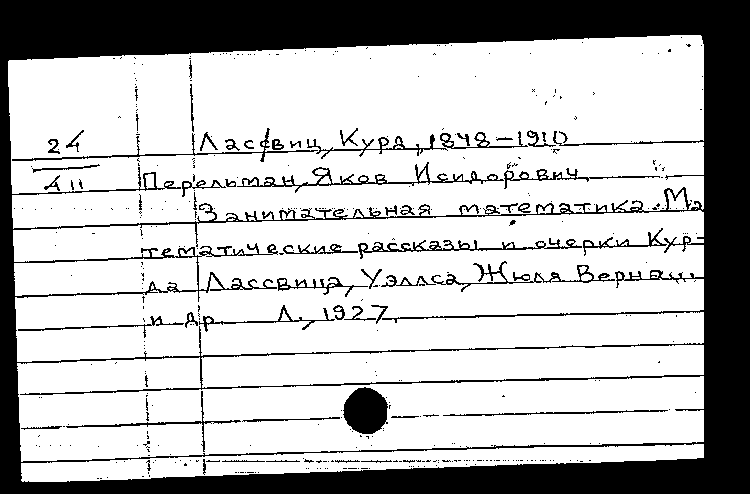 24
411
Лассвиц, Курд, 1848-1910
Перельман, Яков Исидорович.
Занимательная математика. Ма
тематические рассказы и очерки Кур-
да Лассвица, Уэллса, Жюля Верна
и др. Л., 1927.